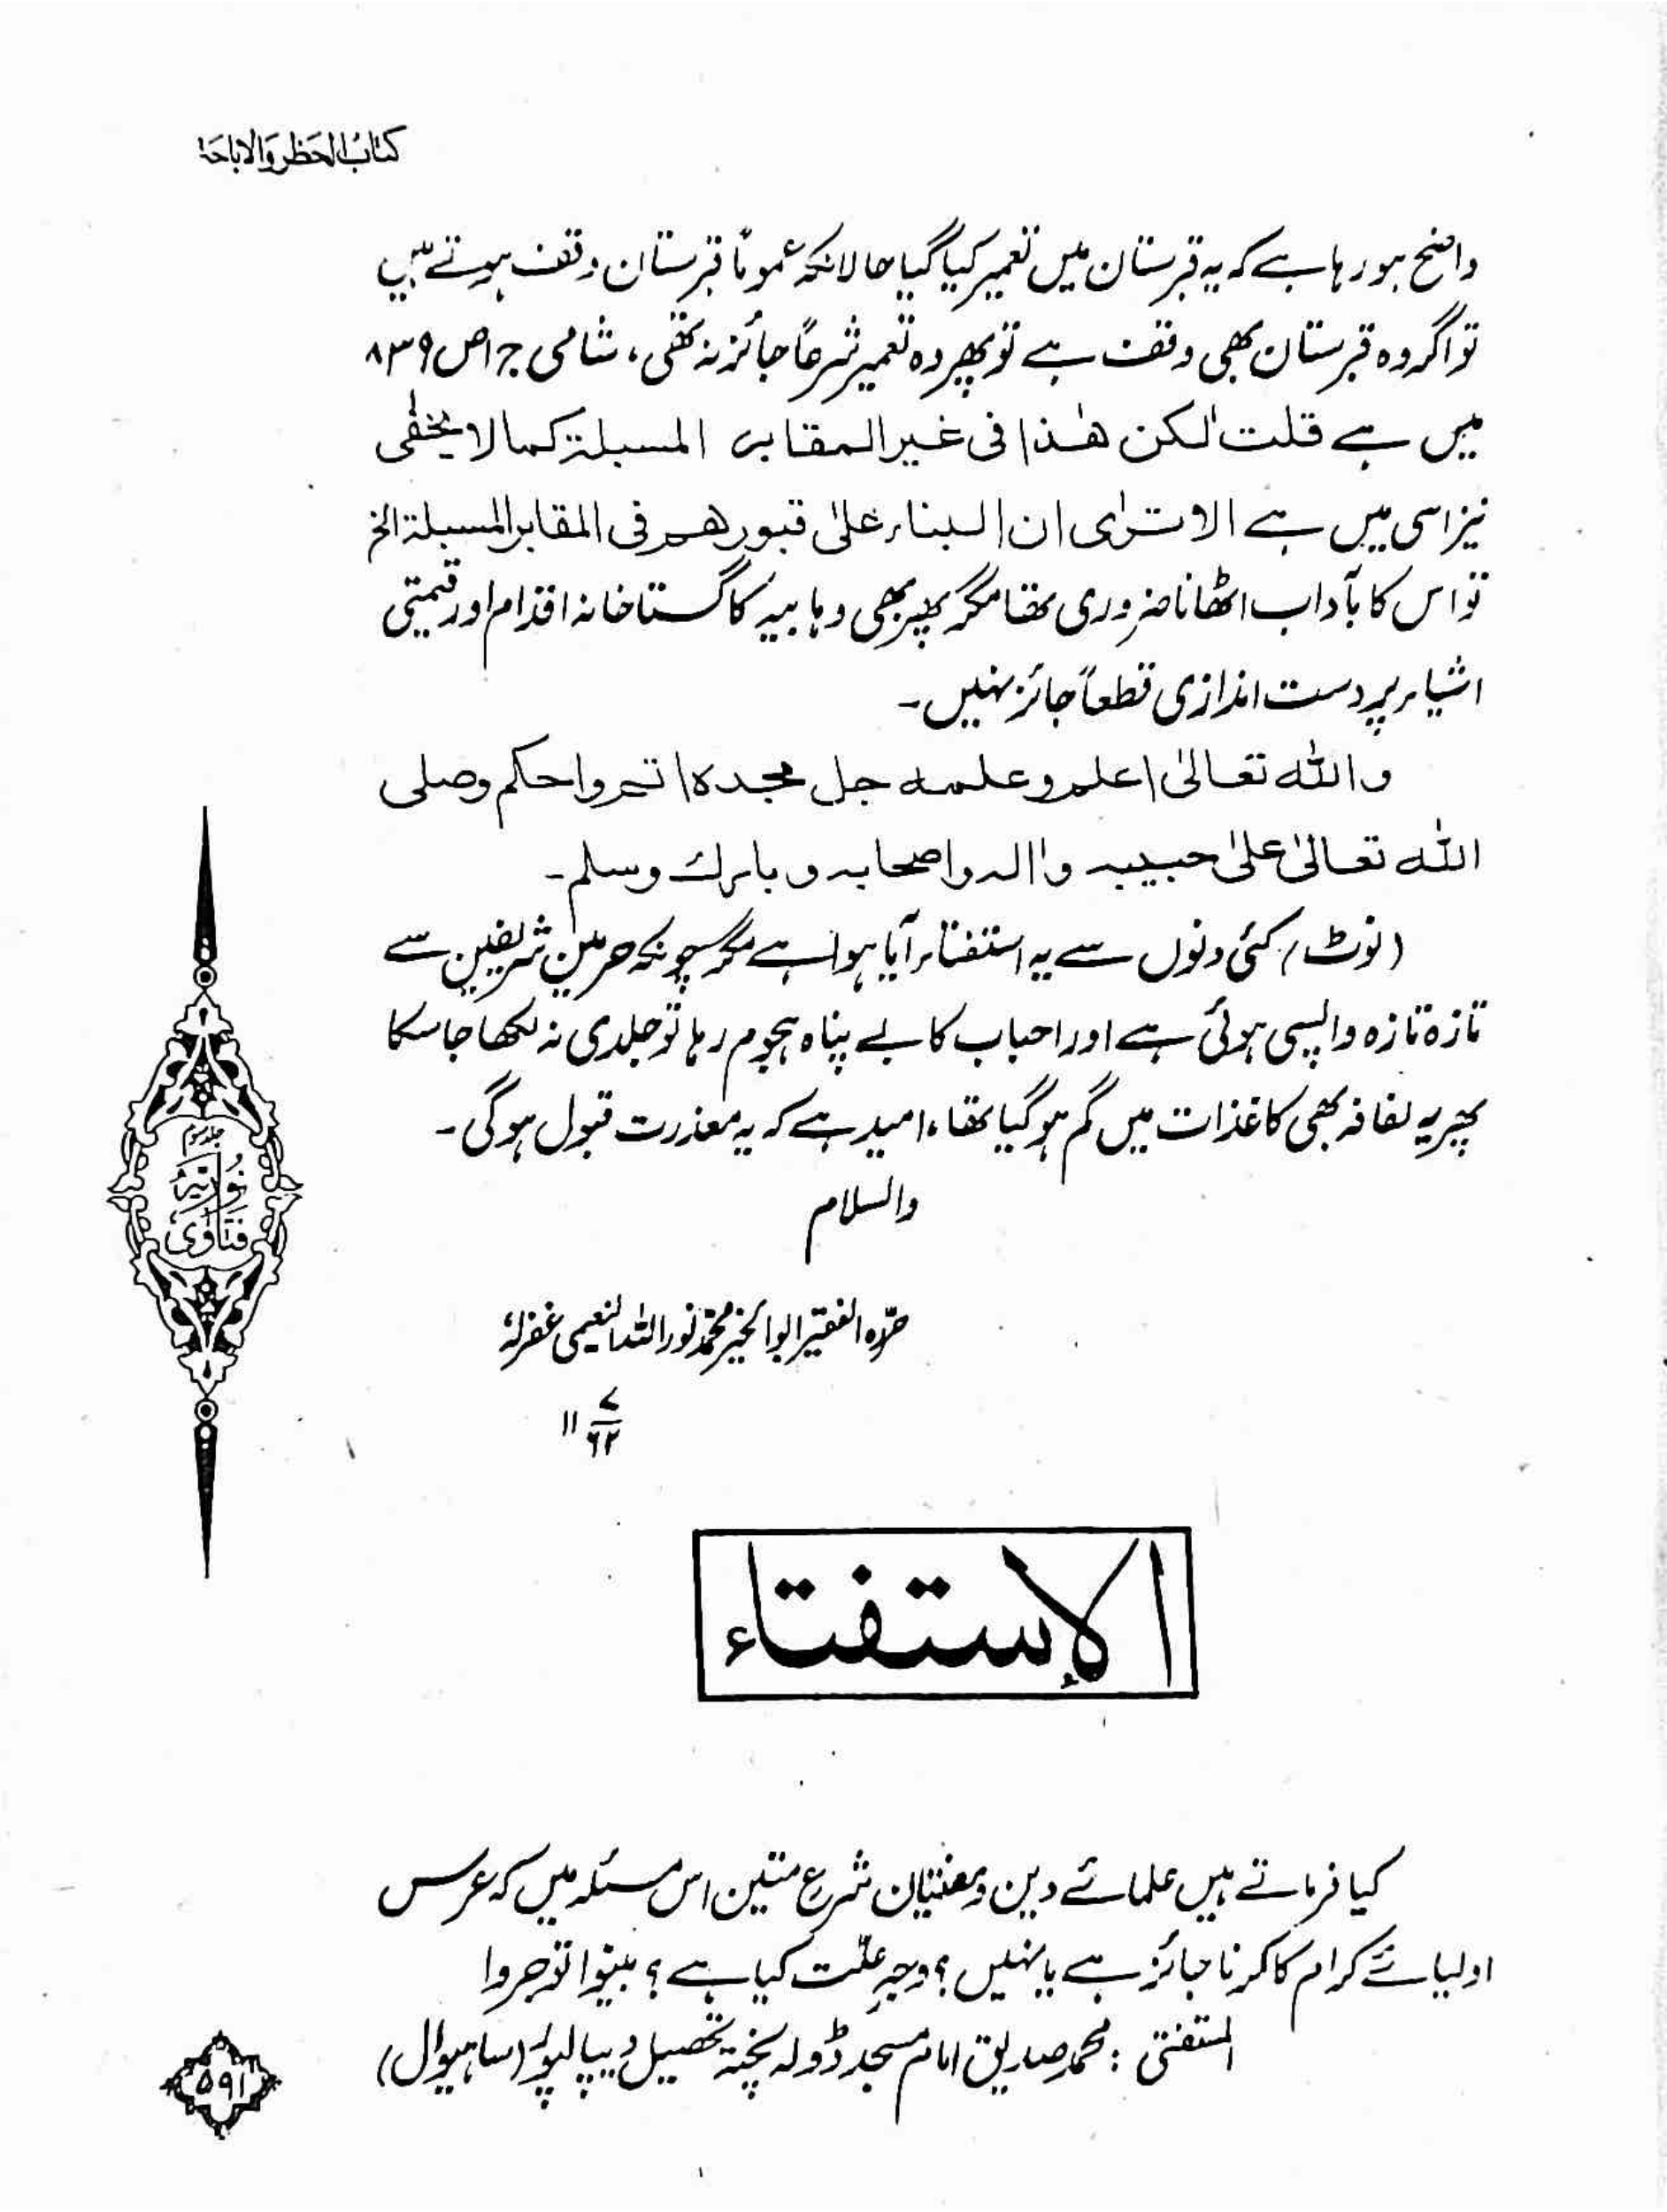 کتاب الحظر والاباحة
واضح ہو رہا ہے کہ یہ قبرستان میں تعمیر کیا گیا حالانکہ عموماً قبرستان وقف ہوتے ہیں
تو اگر وہ قبرستان بھی وقف ہے تو پھر وہ تعمیر شرعاً جائز نہ تھی، شامی ج ۱ ص ۸۳۹
میں ہے قلت لٰکن هٰذا فی غیر المقابر المسبلة کما لا یخفٰی
نیز اسی میں ہے الا ترٰی ان البناء علیٰ قبورهم فی المقابر المسبلة الخ
تو اس کا بآداب اٹھانا ضروری تھا مگر پھر بھی وہابیہ کا گستاخانہ اقدام اور قیمتی
اشیاء پر دست اندازی قطعاً جائز نہیں۔
والله تعالیٰ اعلم وعلمه جل مجدہ اتم واحکم وصلی
الله تعالیٰ علیٰ حبیبه واٰله واصحابه وبارك وسلم۔
(نوٹ) کئی دنوں سے یہ استفتاء آیا ہوا ہے مگر چونکہ حرمین شریفین سے
تازہ تازہ واپسی ہوئی ہے اور احباب کا بے پناہ ہجوم رہا تو جلدی نہ لکھا جا سکا
پھر یہ لفافہ بھی کاغذات میں گم ہو گیا تھا، امید ہے کہ یہ معذرت قبول ہوگی۔
والسلام
حرّرہ الفقیر ابوالخیر محمد نور اللہ النعیمی غفرلہٗ
۱۱ ۷/۶۲
جلد سوم
نوریہ
فتاویٰ
الإستفتاء
کیا فرماتے ہیں علمائے دین و مفتیان شرع متین اس مسئلہ میں کہ عرس
اولیائے کرام کا کرنا جائز ہے یا نہیں؟ وجہِ علّت کیا ہے؟ بینوا توجروا
المستفتی : محمد صدیق امام مسجد ڈولہ پختہ تحصیل دیپالپور (ساہیوال)
۵۹۱